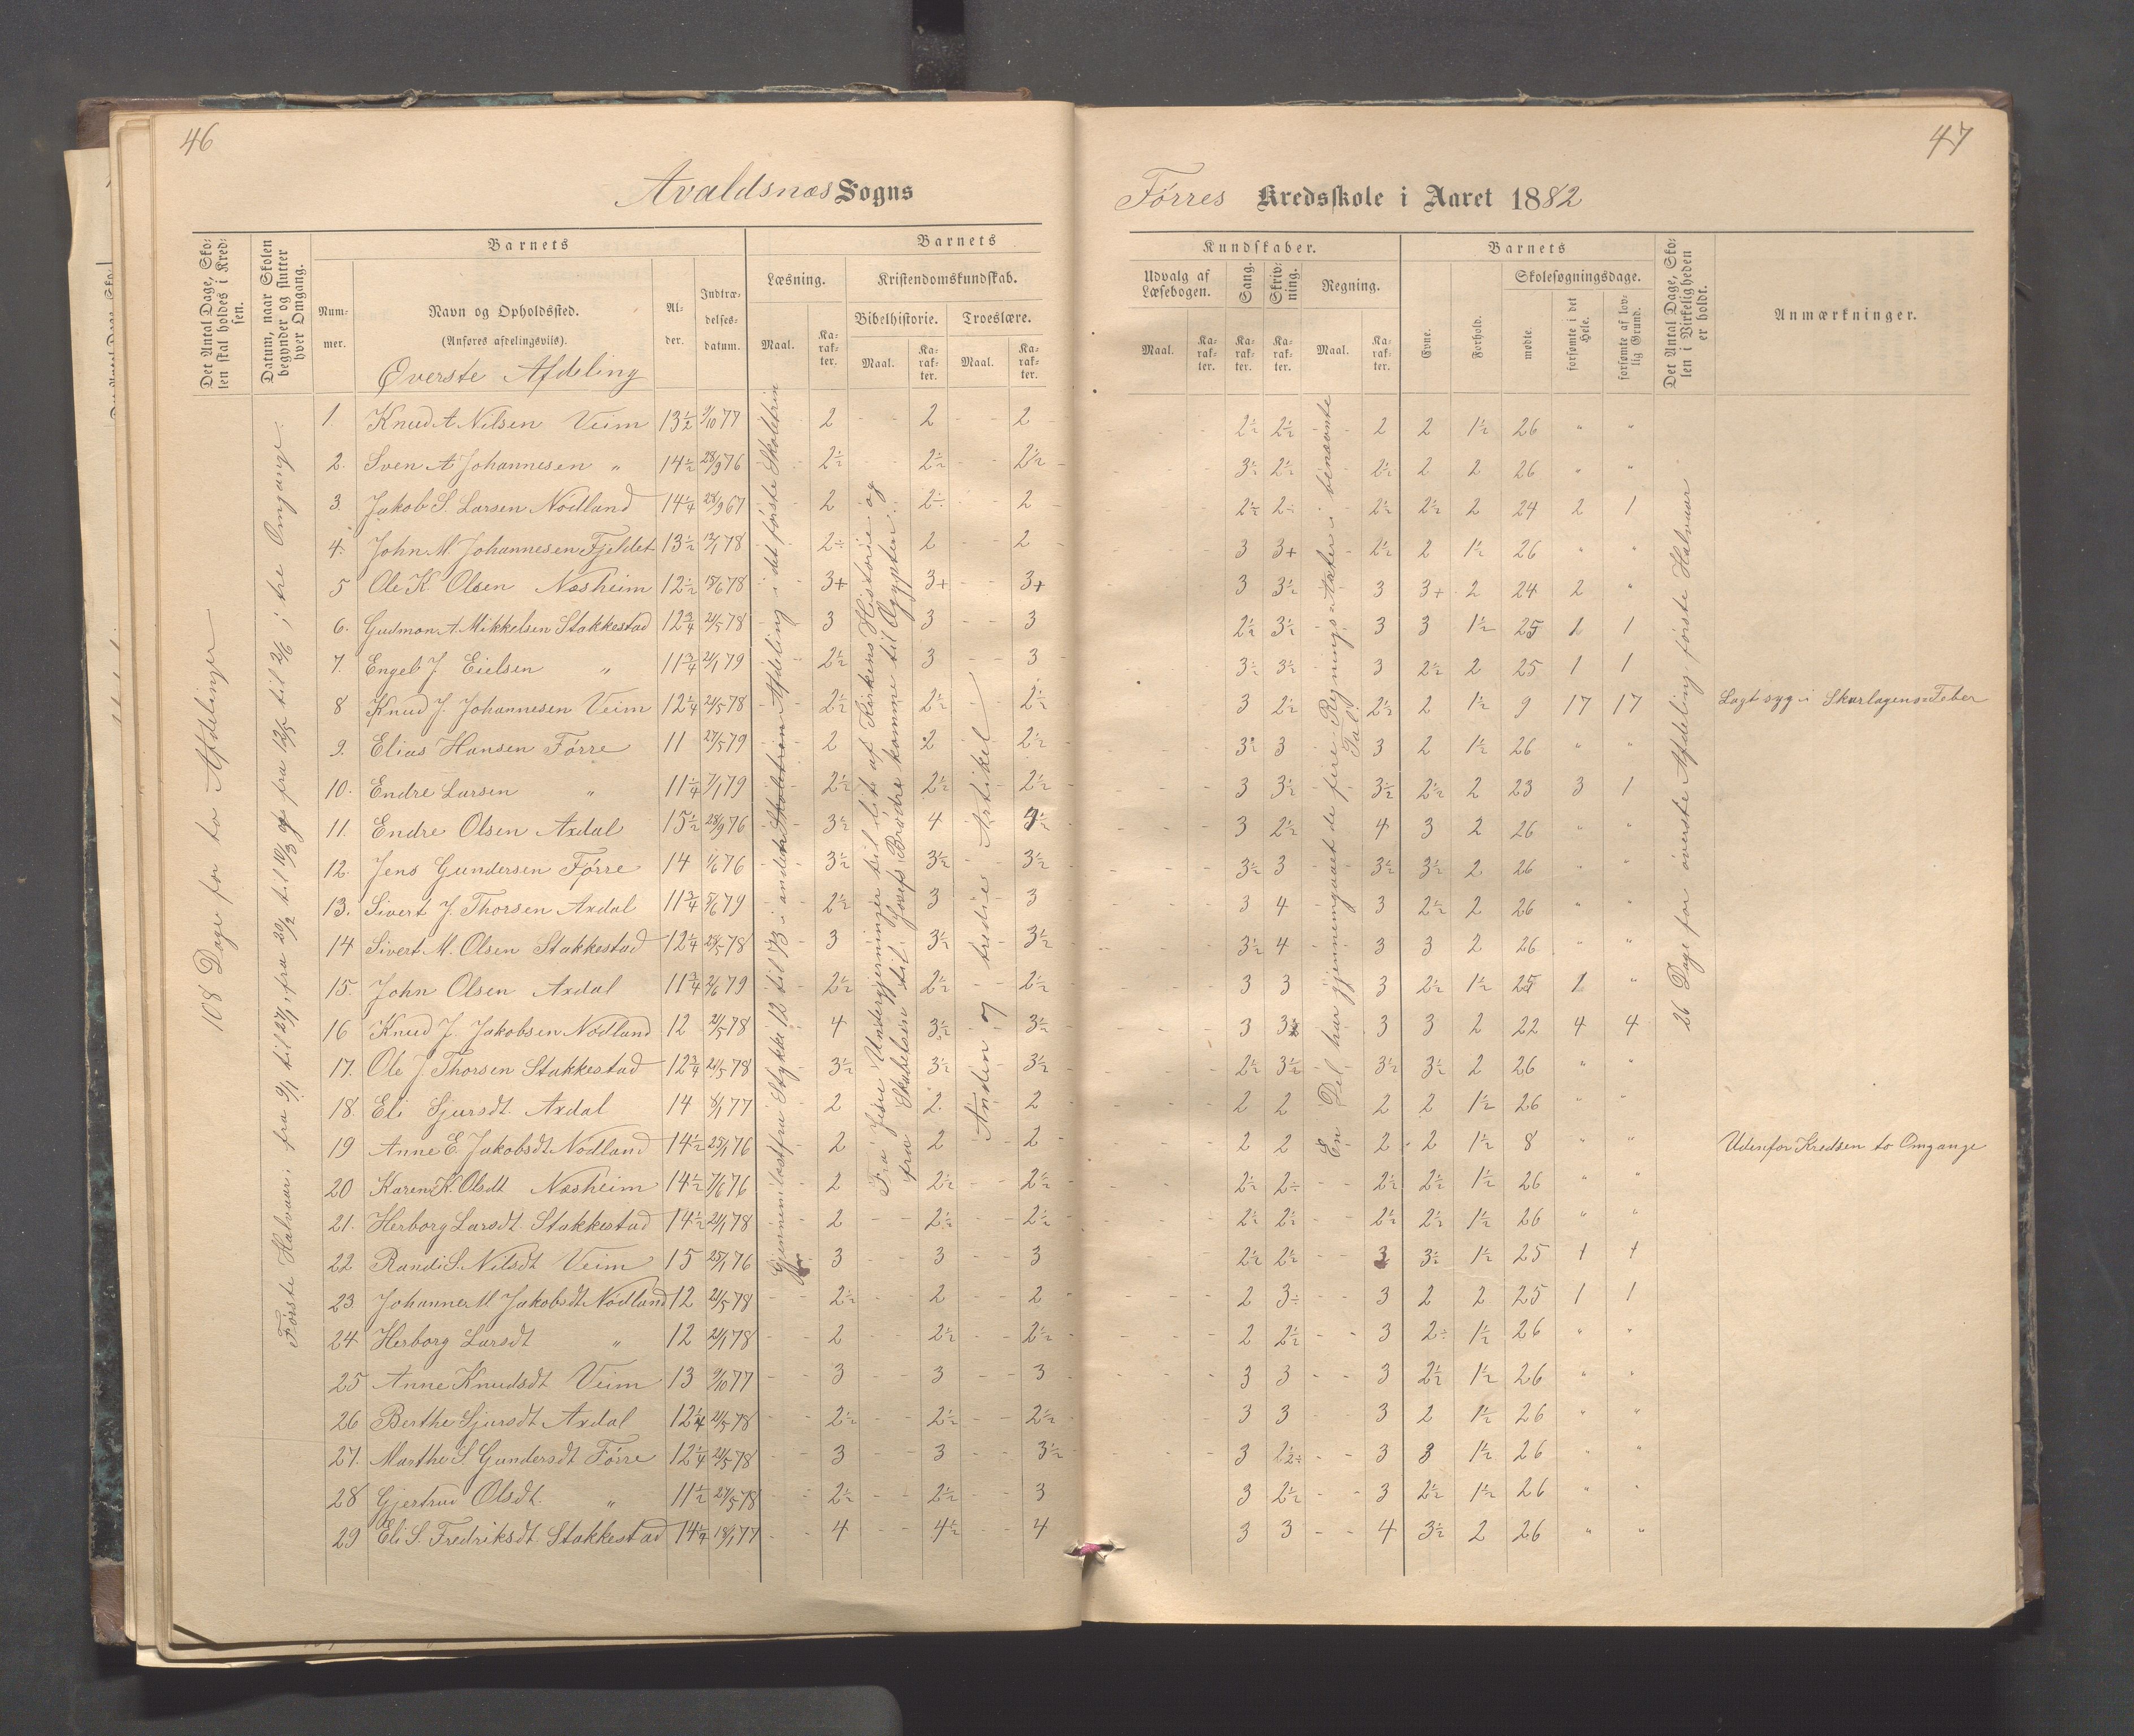 46
47
Avaldsnæs Sogns
Førres Kredsskole i Aaret 1882
Det Antal Dage, Skolen skal holdes i Kredsen.
Datum, naar Skolen begynder og slutter hver Omgang.
Barnets
Nummer.
Navn og Opholdssted.
(Anføres afdelingsviis).
Øverste Afdeling
Alder.
Indtrædelsesdatum.
Barnets
Læsning.
Maal.
Karakter.
Kristendomskundskab.
Bibelhistorie.
Maal.
Karakter.
Troeslære.
Maal.
Karakter.
Kundskaber.
Udvalg af Læsebogen.
Maal.
Karakter.
Sang.
Karakter.
Skrivning.
Karakter.
Regning.
Maal.
Karakter.
Barnets
Evne.
Forhold.
Skolesøgningsdage.
mødte.
forsømte i det Hele.
forsømte af lovlig Grund.
Det Antal Dage, Skolen i Virkeligheden er holdt.
Anmærkninger.
108 Dage for to Afdelinger
Første Halvaar: fra 9/1 til 27/1, fra 20/2 til 10/3 og fra 12/5 til 2/6 i tre Omgange.
Gjennemlæst fra Stykke 12 til 73 i anden Skoletrin Afdeling i det første Skoletrin
Fra Jesu Undergjerninger til lidt af Kirkens Historie og
fra Skabelsen til Josefs Brødre komme til Ægypten.
Anden og tredie Artikel
En Del har gjennemgaaet de fire Regningsarter i benævnte
Tal.
26 Dage for øverste Afdeling første Halvaar
1 Knud A Nilsen Veim 13½ 9/10 77 2 2 2 2½ 2½ 2 2 1½ 26 " "
2. Sven A Johannesen " 14½ 28/9 76 2½ 2½ 2½ 3½ 2½ 2½ 2 2 26 " "
3. Jakob S. Larsen Nødland 14¼ 28/9 67 2 2÷ 2 2½ 2÷ 2½ 2½ 2 24 2 1
4. John M. Johannesen Fjeldet 13½ 78 2÷ 2 2 3 3+ 2½ 2 1½ 26 " "
5 Ole K. Olsen Næsheim 12½ 78 3+ 3+ 3+ 3 3½ 3 3+ 2 24 2 "
6. Gudmon A. Mikkelsen Stakkestad 12¾ 21/5 78 3 3 3 2½ 3½ 3 3 1½ 25 1 1
7. Engel J. Eielsen " 11¾ 79 2½ 3 3 3½ 3½ 3 2½ 2 25 1 1
8 Knud J. Johannesen Veim 12¼ 21/5 78 2½ 2½ 2½ 3 2½ 2½ 2 1½ 9 17 17 Lagt syg i Skarlagens-Feber
9. Elias Hansen Førre 11 27/5 79 2 2 2½ 3 3 2 1½ 26 " "
10. Endre Larsen " 11¼ 7/1 79 2½ 2½ 2½ 3 3½ 3½ 2½ 2 23 3 1
11. Endre Olsen Axdal 15½ 28/9 76 3½ 4 3 2½ 4 3 2 26 " "
12. Jens Gundersen Førre 14 1/6 76 3½ 3½ 3½ 3½ 3 3½ 3½ 2 26 " "
13. Sivert J. Thorsen Axdal 11¾ 79 2½ 3 3 3 4 3 2½ 2 26 " "
14 Sivert M. Olsen Stakkestad 12¼ 78 3 3½ 3½ 3½ 4 3 3 2 26 " "
15. John Olsen Axdal 11¾ 79 2½ 2½ 2½ 3 3 3 2½ 1½ 25 1 "
16 Knud J. Jakobsen Nødland 12 21/5 78 4 3½ 3½ 3 3 3 3 2 22 4 4
17. Ole J. Thorsen Stakkestad 12¾ 21/5 78 3½ 3½ 3½ 2½ 3½ 3½ 3½ 2 26 " "
18. Eli Sjursdt. Axdal 14 8/1 77 2 2 2 2 2 2 2 1½ 26 " "
19 Anne E. Jakobsdt Nødland 14½ 25/1 76 2 2 2 2 2 2 2 1½ 8 " " Udenfor Kredsen to Omgange
20 Karen K. Olsdt Næsheim 14½ 7/6 76 2 2½ 2½ 2½ 2÷ 2½ 2½ 1½ 26 " "
21. Herborg Larsdt. Stakkestad 14½ 21/1 78 2 2½ 2½ 2½ 2½ 2½ 2½ 1½ 26 " "
22 Randi S. Nilsdt Veim 15 25/1 76 3 3 3 2½ 2½ 3 3½ 1½ 25 1 1
23. Johanne M Jakobsdt Nødland 12 21/5 78 2½ 2 2 2 3÷ 3 2 2 25 1 1
24 Herborg Larsdt " 12 21/1 78 2 2½ 2½ 2 2½ 3 2÷ 1½ 26 " "
25 Anne Knudsdt Veim 13 9/10 77 3 3 3 3 3 3 2½ 1½ 26 " "
26 Berthe Sjursdt Axdal 12¼ 21/5 78 2½ 2½ 2½ 3 3 3 2 1½ 26 " "
27. Marthe S. Gundersdt Førre 12¼ 21/5 78 3 3 3½ 3 2½ 3 3 1½ 26 " "
28 Gjertrud Olsdt. " 11½ 27/5 78 2½ 2½ 3 3 2½ 3 2½ 1½ 26 " "
29 Eli S. Fredriksdt. Stakkestad 14¼ 18/1 77 4 4½ 4 3 3 4 3½ 2 26 " "